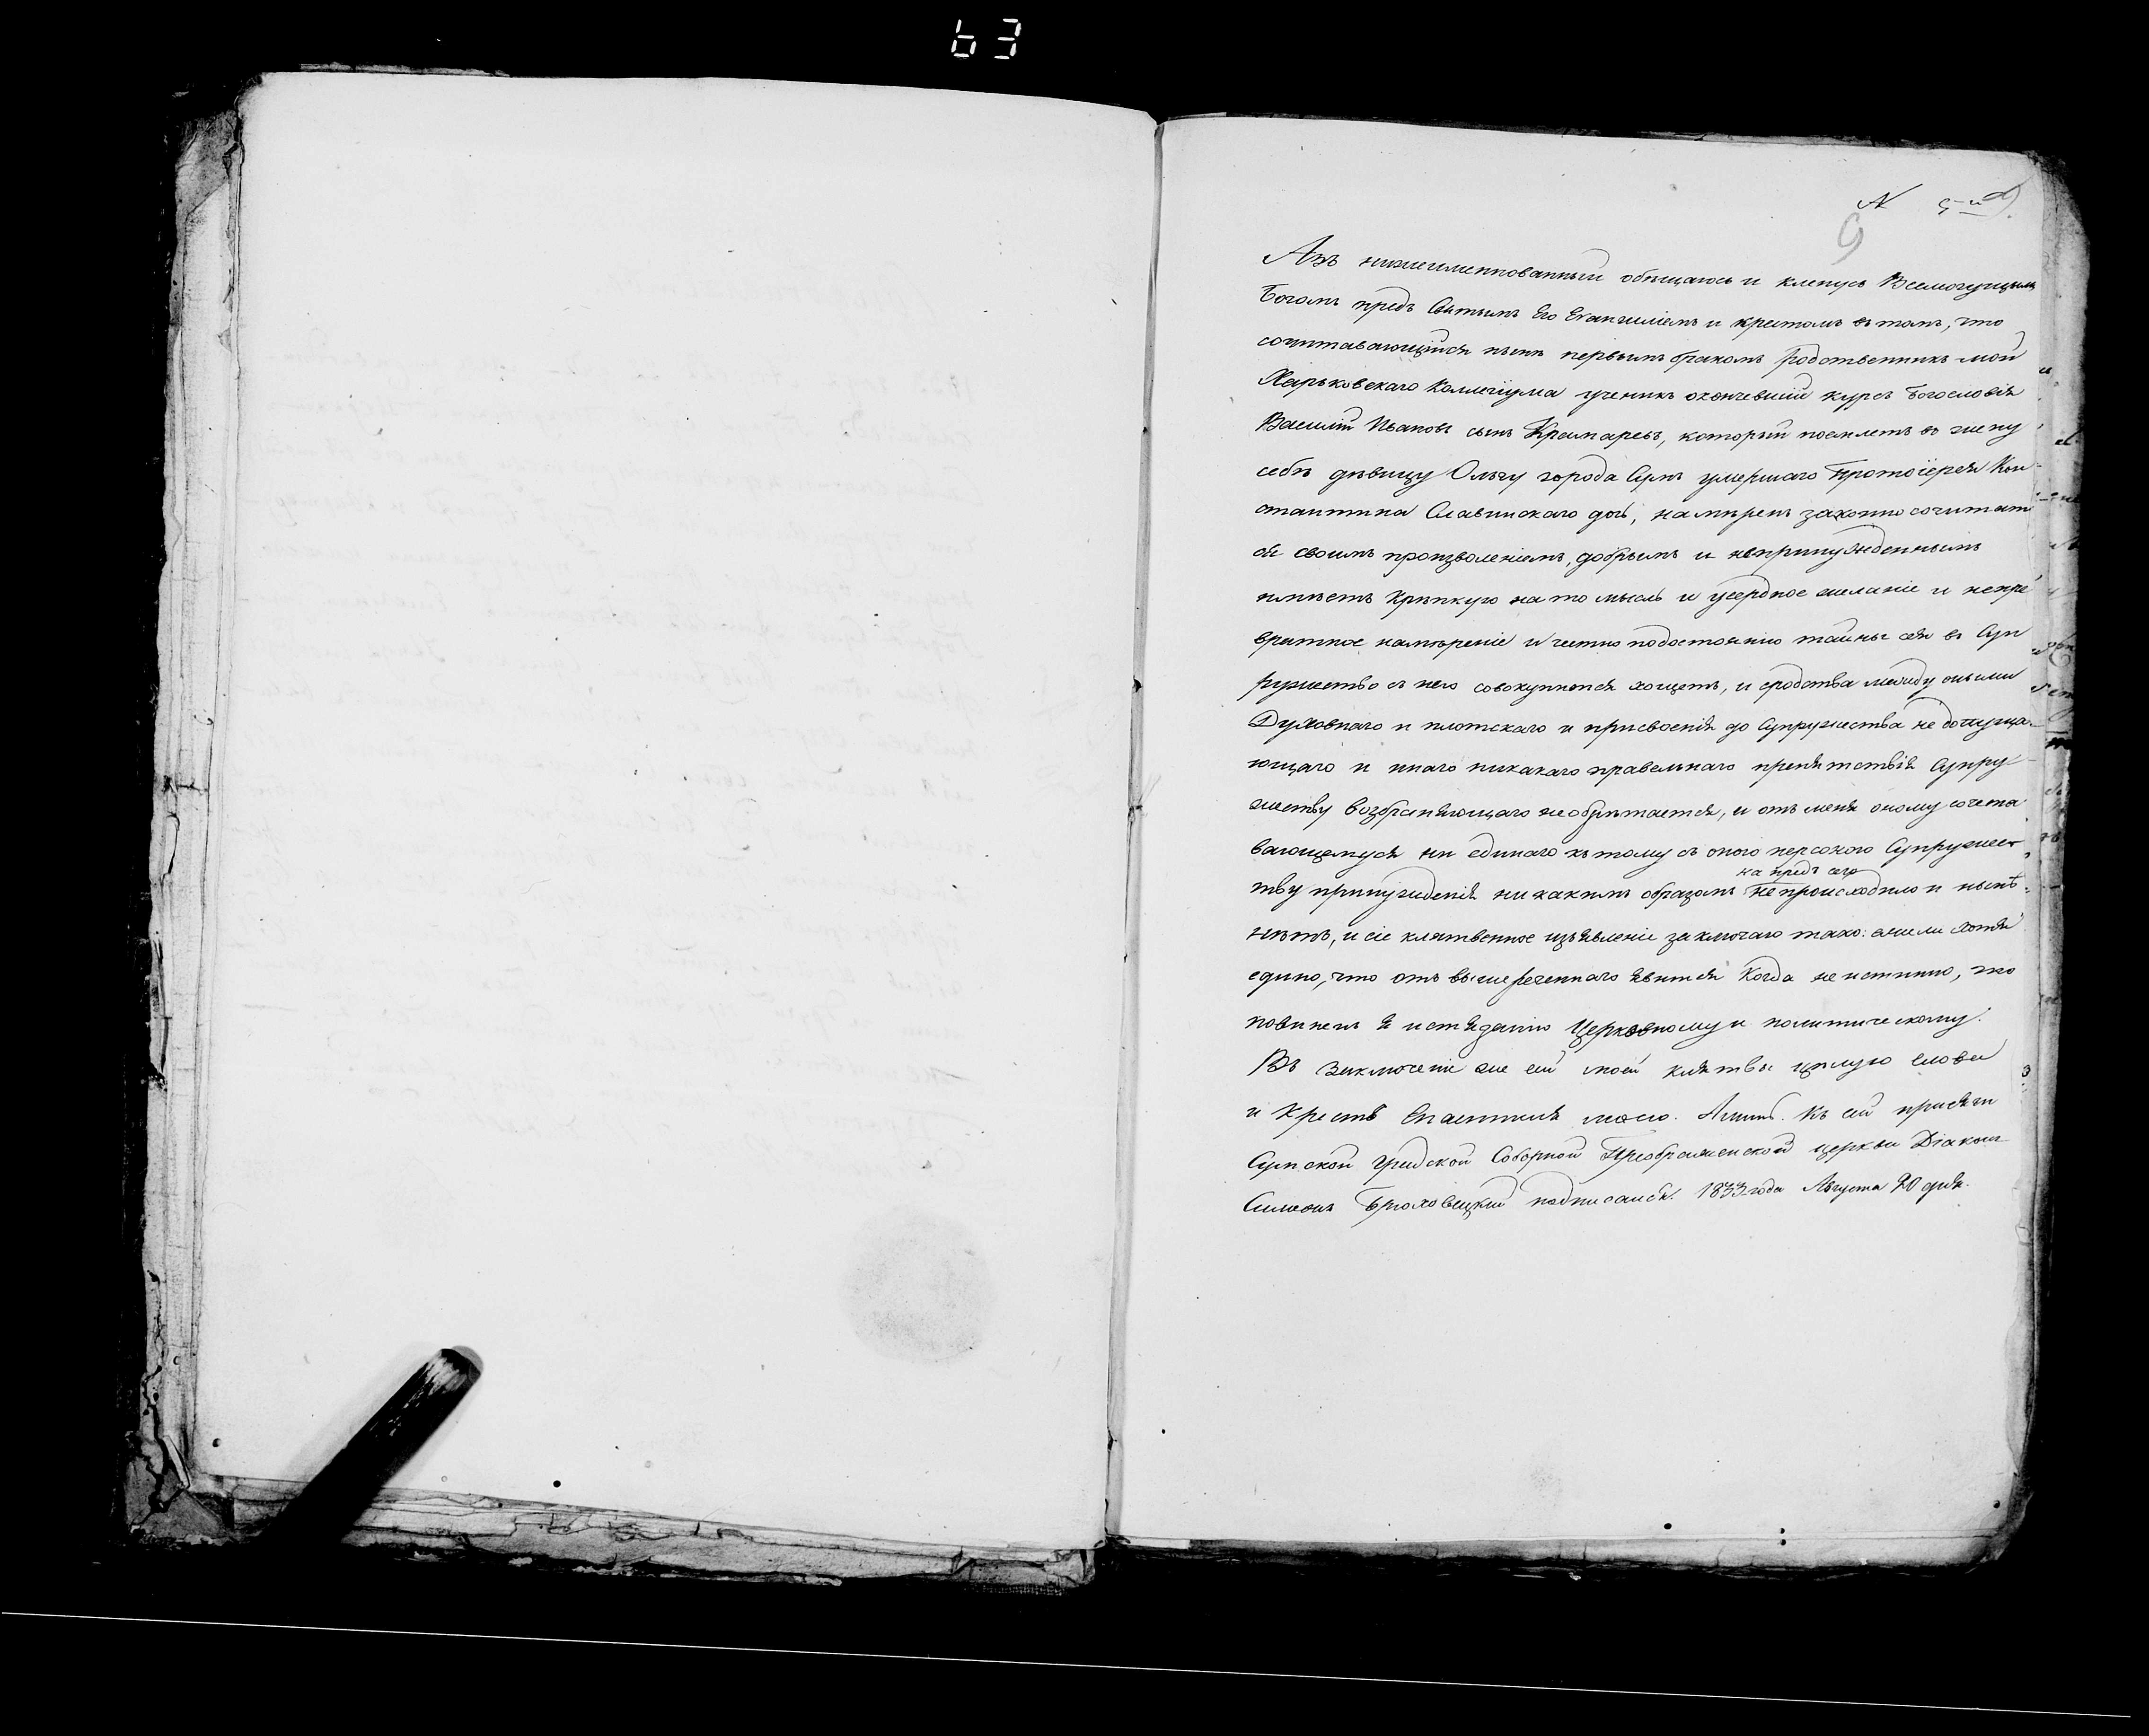 63
№ 5-й
9
Азъ нижеименнованный обѣщаюсь и кленусь Всемогущимъ
Богомъ предъ Святымъ Его Евангеліемъ и крестомъ въ томъ, что
сочитавающійся нынѣ первымъ бракомъ родственникъ мой
Харьковскаго Коллегіума ученикъ окончевшій курсъ Богословія
Василій Ивановъ сынъ Крамаревъ, который поемлетъ въ жену
себѣ дѣвицу Ольгу города Сумъ умершаго Протоіерея Кон-
стантина Славинскаго дочь, намѣренъ законно сочитат
ся своимъ произволеніемъ, добрымъ и непринужденнымъ
имѣетъ крѣпкую на то мысль и усердное желаніе и непре
вратное намѣреніе и честно подостоянію тайны сея въ Суп
ружество съ нею совокупится хощетъ, и сродства между оными
Духовнаго и плотскаго и присвоенія до Супружества не допуща-
ющаго и инаго никакаго правельнаго препятствія Супру-
жеству возбраняющаго необрѣтается, и отъ меня оному сочета
вающемуся ни единаго къ тому съ оною персоною Супружес-
на предъ сего
тву принужденія ни какимъ образомъ не происходило и нынѣ
нѣтъ, и сіе клятвенное изъявленіе заключаю тако: ежели хотя
едино, что отъ вышереченнаго явится когда не истинно, то
повиненъ я истязанію Церковному и политическому.
Въ заключеніе же сей моей клятвы цѣлую слова
и Крестъ Спасителя моего. Аминь. Къ сей присяги
Сумской градской Соборной Преображенской церкви Діаконъ
Симеонъ Брюховецкій подписался. 1833 года Августа 20 дня.